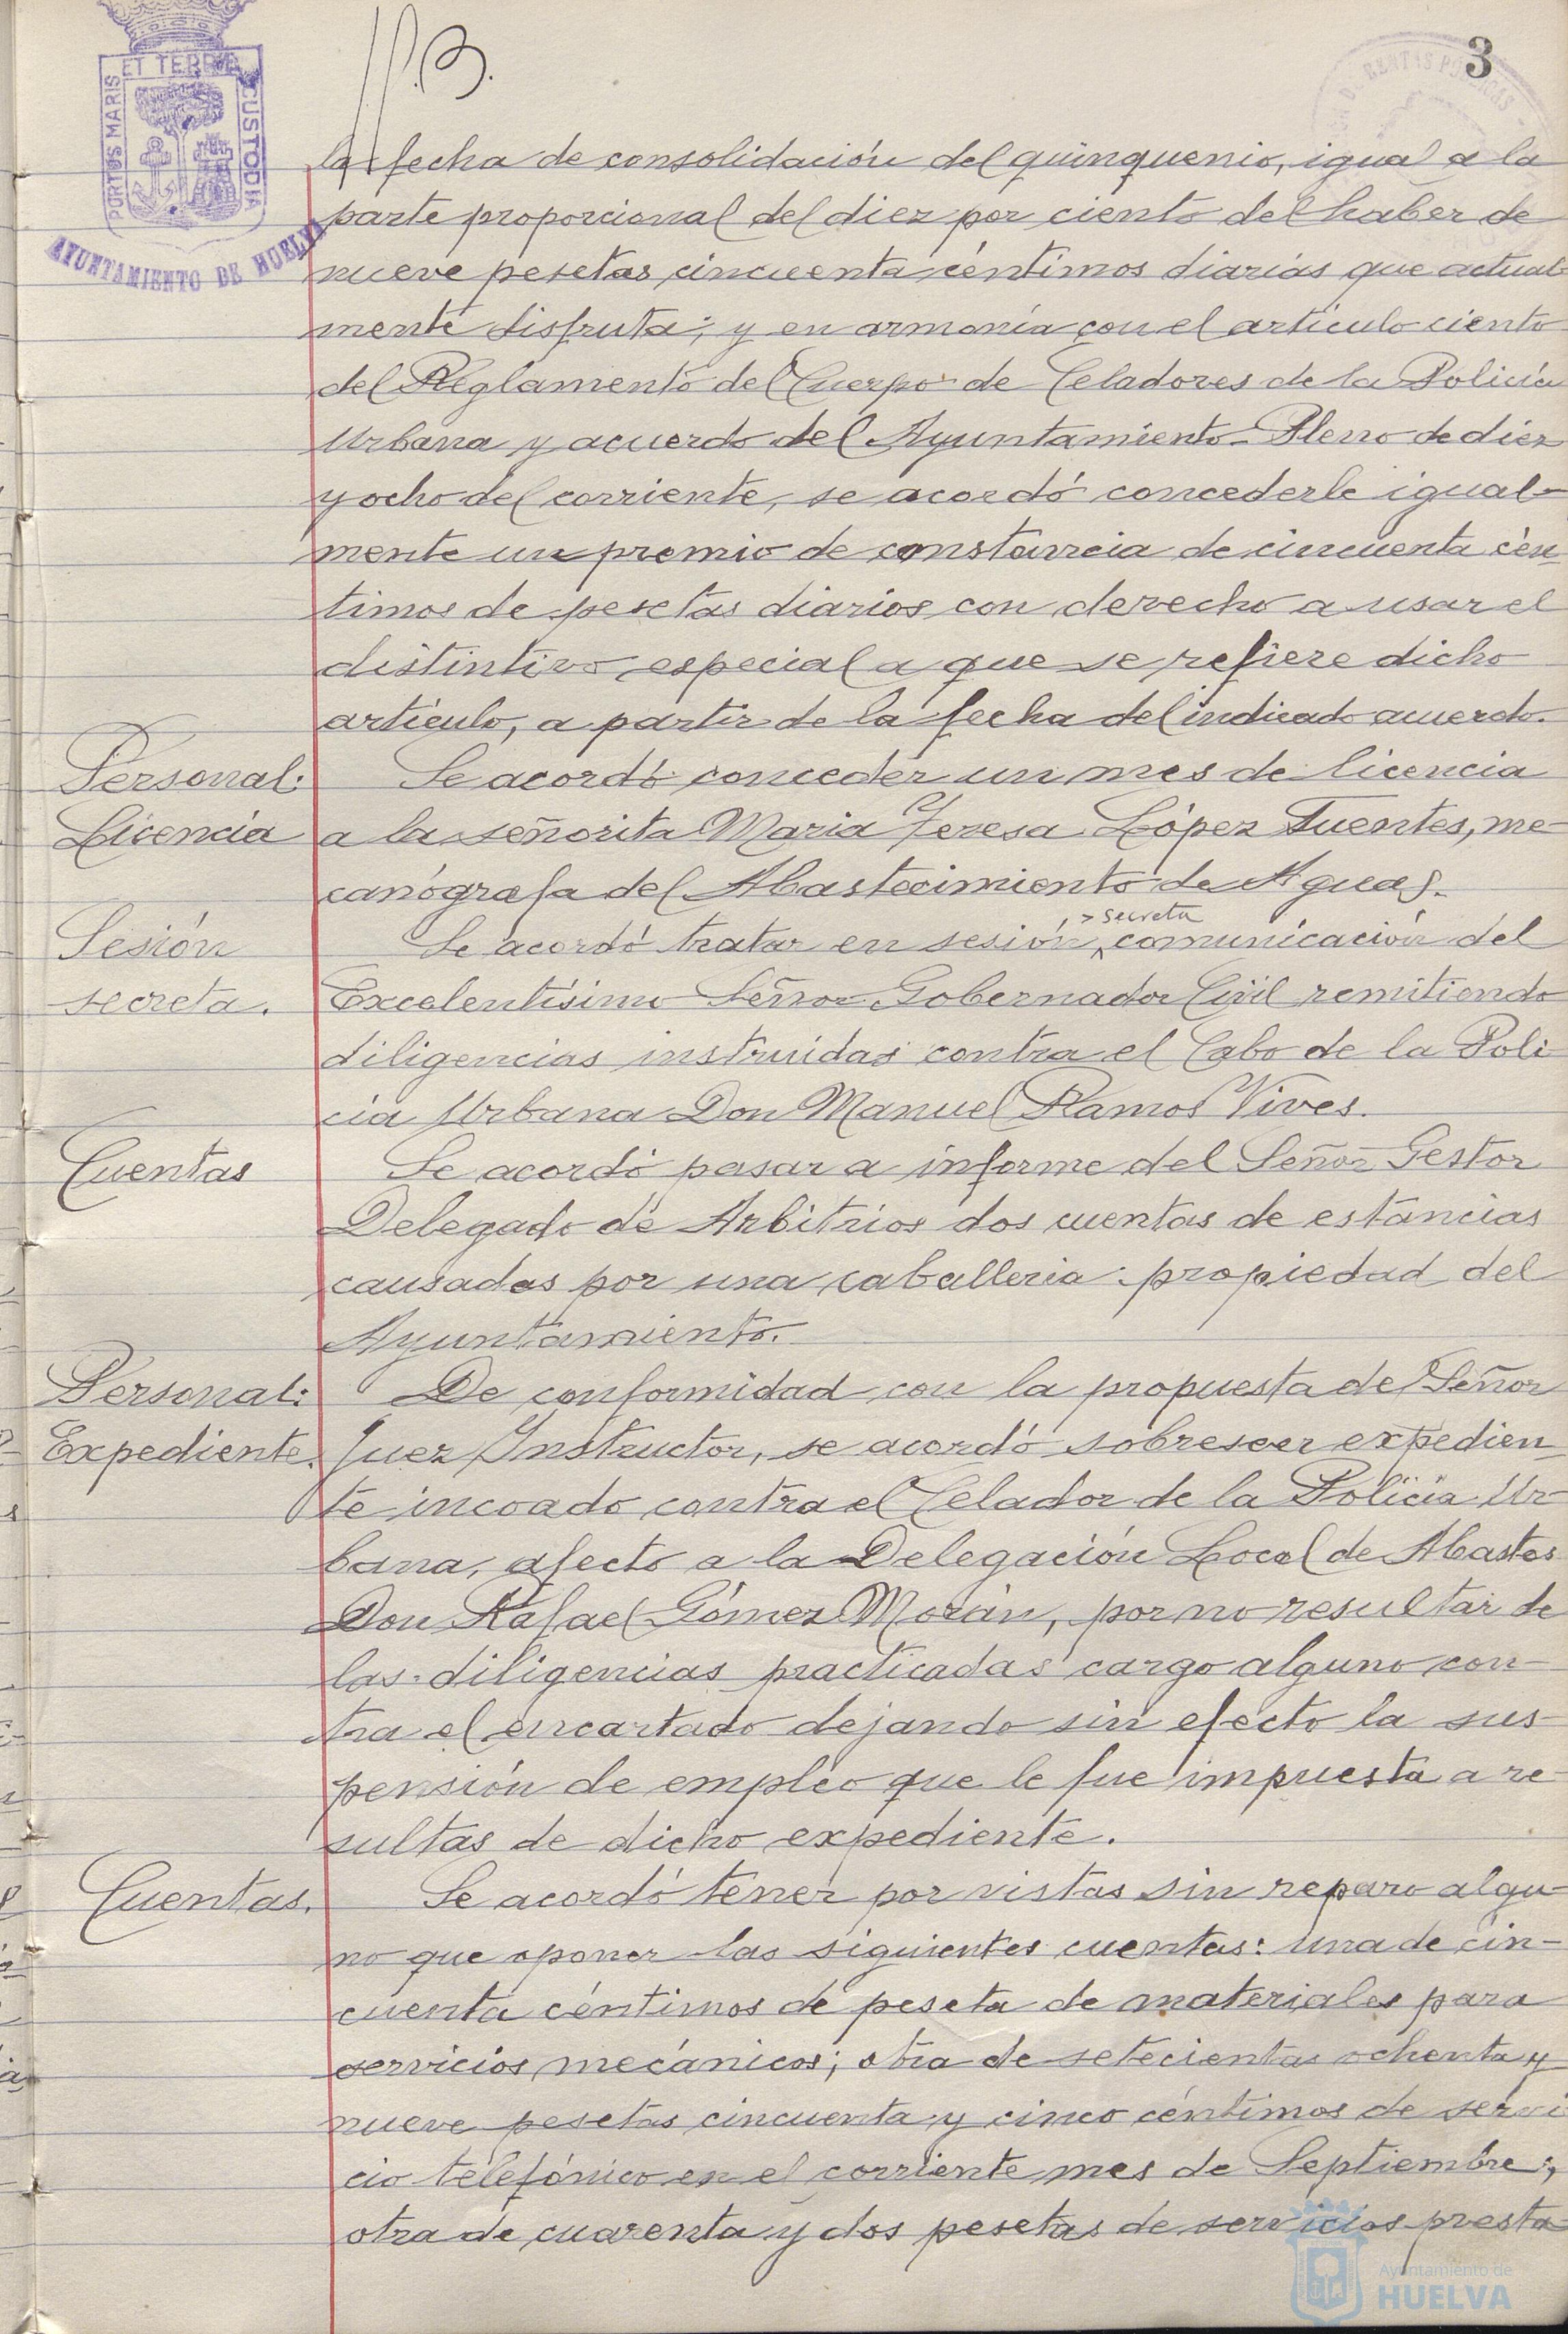 3
PORTUS MARIS ET TERRE CUSTODIA
AYUNTAMIENTO DE HUELVA
RENTAS PUBLICAS
la fecha de consolidación del quinquenio, igual a la
parte proporcional del diez por ciento del haber de
nueve pesetas cincuenta céntimos diarias que actual-
mente disfruta; y en armonía con el artículo ciento
del Reglamento del Cuerpo de Celadores de la Policía
Urbana y acuerdo del Ayuntamiento Pleno de diez
y ocho del corriente, se acordó concederle igual-
mente un premio de constancia de cincuenta cén-
timos de pesetas diarios con derecho a usar el
distintivo especial a que se refiere dicho
artículo, a partir de la fecha del indicado acuerdo.
Personal: Se acordó conceder un mes de licencia
Licencia a la señorita Maria Teresa López Fuentes, me-
canógrafa del Abastecimiento de Aguas.
Sesión Se acordó tratar en sesión secreta comunicación del
secreta. Excelentísimo Señor Gobernador Civil remitiendo
diligencias instruidas contra el Cabo de la Poli
cia Urbana Don Manuel Ramos Vives.
Cuentas Se acordó pasar a informe del Señor Gestor
Delegado de Arbitrios dos cuentas de estancias
causadas por una caballeria propiedad del
Ayuntamiento.
Personal: De conformidad con la propuesta del Señor
Expediente. Juez Instructor, se acordó sobreseer expedien-
te incoado contra el Celador de la Policia Ur-
bana, afecto a la Delegación Local de Abastos
Don Rafael Gómez Morán, por no resultar de
las diligencias practicadas cargo alguno con-
tra el encartado dejando sin efecto la sus-
pensión de empleo que le fue impuesta a re-
sultas de dicho expediente.
Cuentas. Se acordó tener por vistas sin reparo algu-
no que oponer las siguientes cuentas: una de cin-
cuenta céntimos de peseta de materiales para
servicios mecánicos; otra de setecientas ochenta y
nueve pesetas cincuenta y cinco céntimos de servi
cio telefónico en el corriente mes de Septiembre;
otra de cuarenta y dos pesetas de servicios presta-
Ayuntamiento de
HUELVA